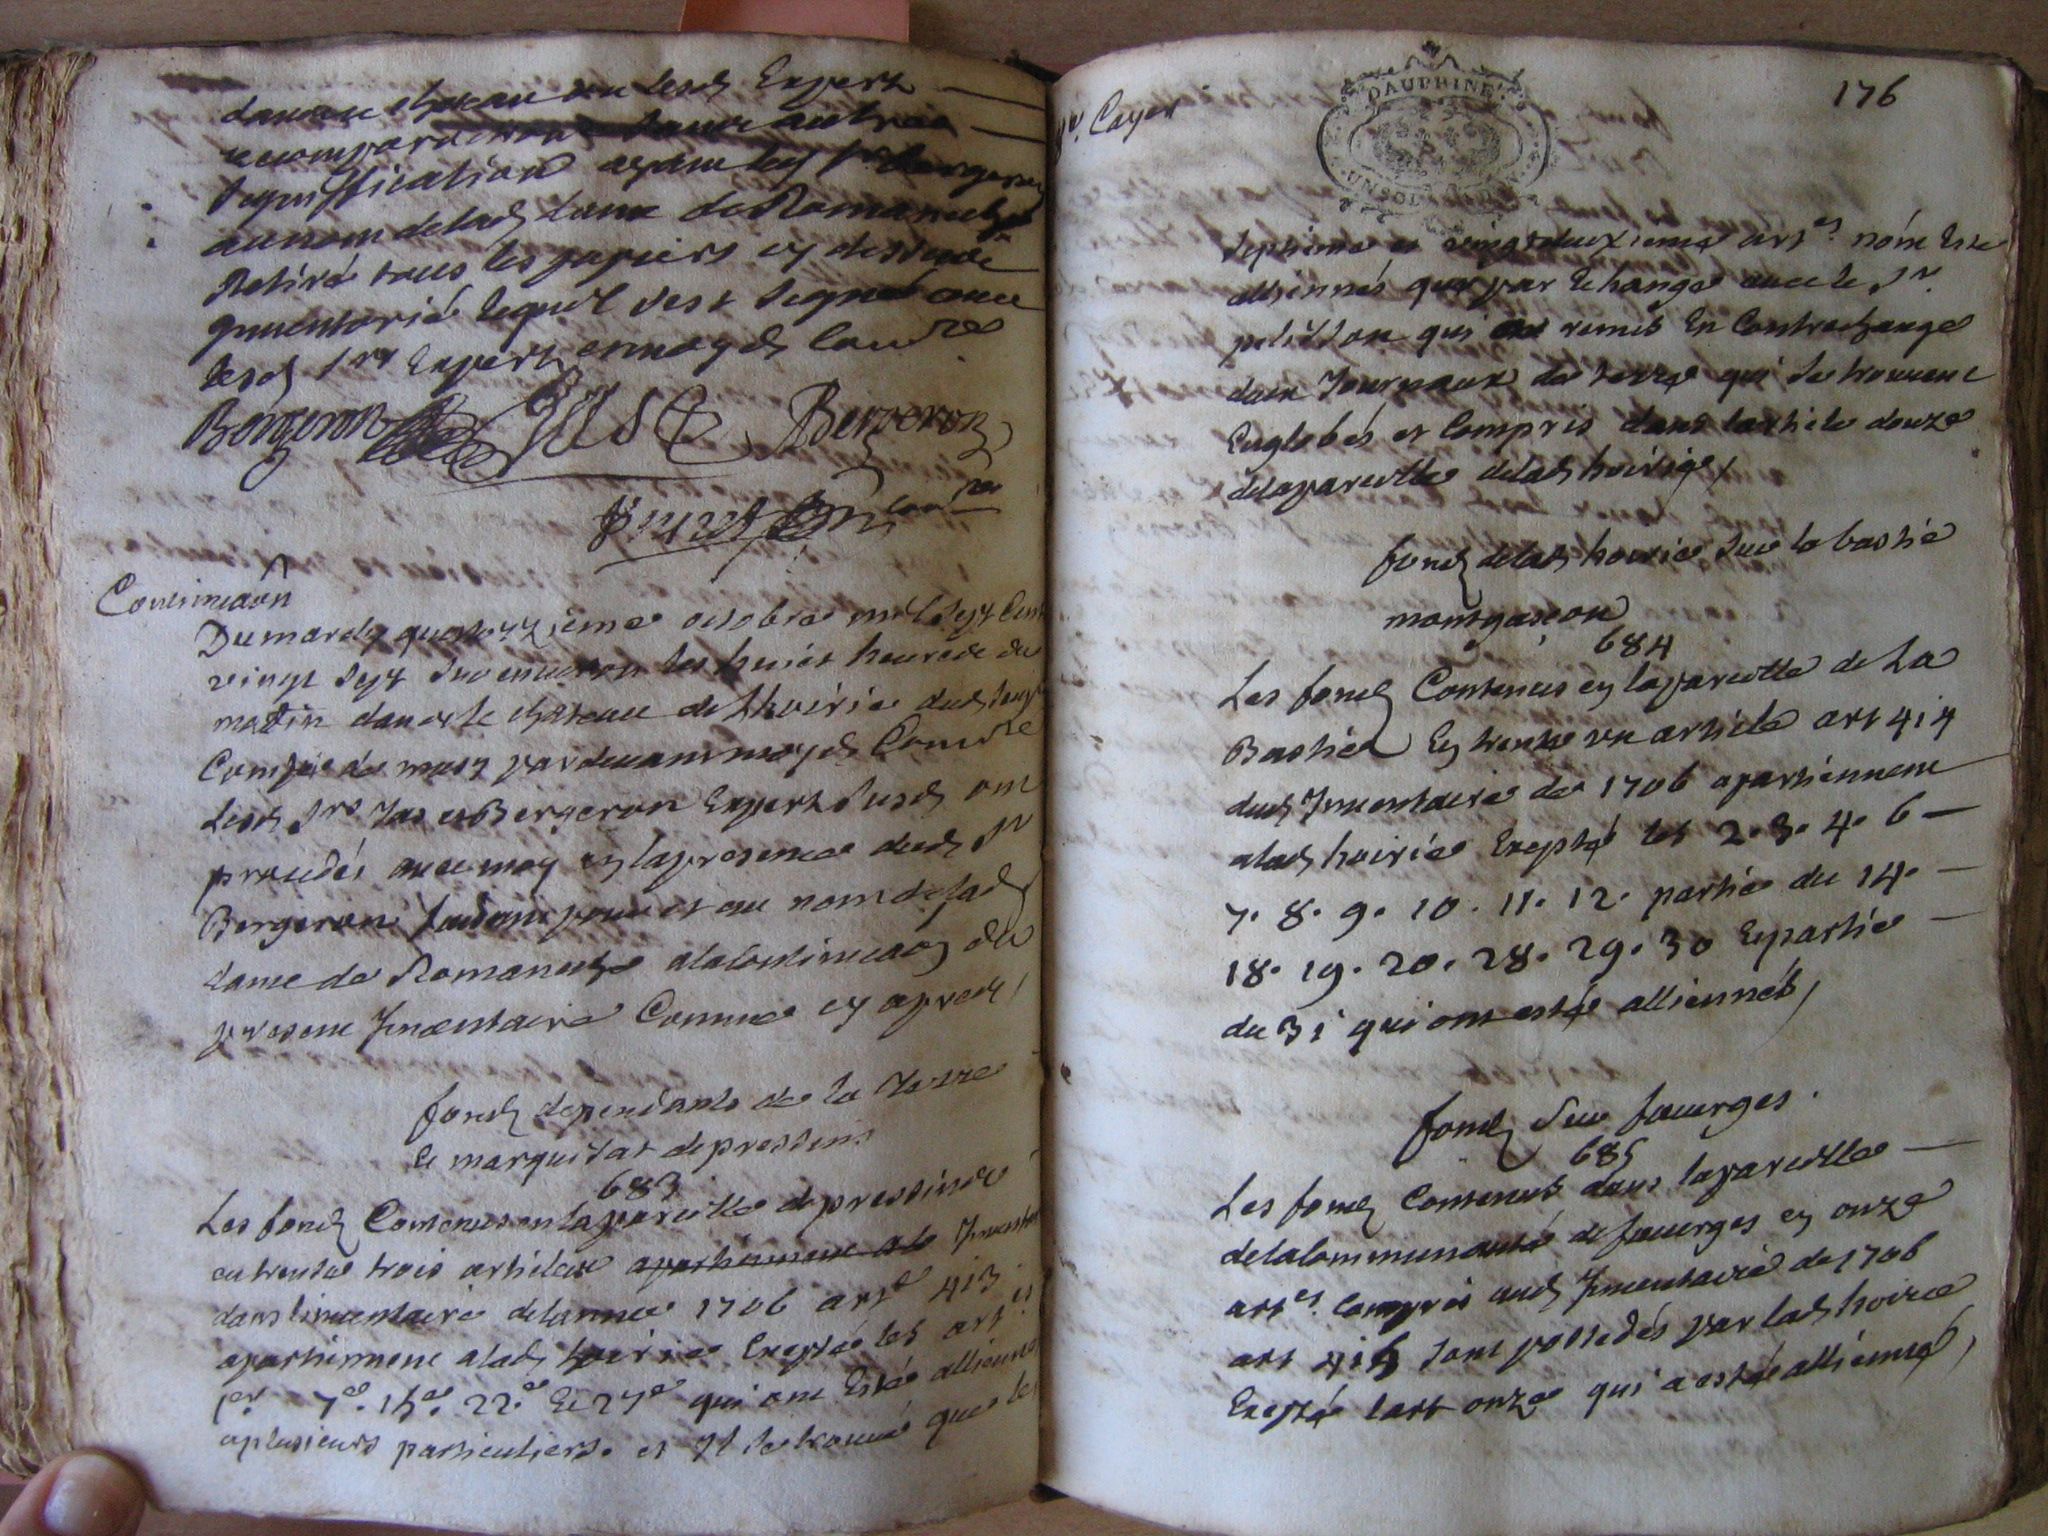 dans ce chateau ou lesd Expert
recomparoitront sans autre
signiffication ayant led sr Bergeron
au nom de lad dame de Romanesche
Retiré tous les papiers cy dessus
Inventorié lequel s'est signé avec
lesd srs Expert et moyd
Bergeron Bergeron
Continuaon
Du mardy quatorzieme octobre mil sept Cent
vingt sept environ les huict heures du
matin dans le chateau de Lhoirie dud
par devant moyd
Lesd srs Jas et Bergeron Expert susd ont
procedés avec moy en la presence dud sr
Bergeron faisant pour et au nom de lad
dame de Romanesche a la Continuaon du
present Inventaire Comme cy apres /
fond dependants de la Terre
Et marquisat de pressins
683
Les fond Contenus en la parcelle de pressins
en trente trois articles apartienent a la
dans linventaire de lannée 1706 art 413
apartienent a lad hoirie Excepté les art es
1er 7e 15e 22e Et 27e qui ont Esté allienné
a plusieurs particuliers et Il se trouve que le
Cayer
DAUPHINÉ
UN SOL
176
septieme et vingt deuxieme art es nont Esté
alliennés que par Echange avec le sr
pelisson qui a remis En Contrechange
deux Journaux de terre qui se trouvent
Englobés et Compris dans larticle douze
de la parcelle de lad hoirie /
fond de lad hoirie sur la bastie
montgascon
684
Les fond Contenus en la parcelle de La
Bastie En trente un article art 414
dud Inventaire de 1706 apartiennent
a lad hoirie Excepté les 2. 3. 4. 6 —
7. 8. 9. 10. 11. 12. partie du 14. —
18. 19. 20. 28. 29. 30 Et partie —
du 31 qui ont esté alliennés /
fond sur faverges.
685
Les fond Contenus dans la parcelle —
de la Communauté de faverges en onze
art es. Compris aud Inventaire de 1706
art 415 sont possedés par lad hoirie
Excepté lart onze qui a esté allienné /